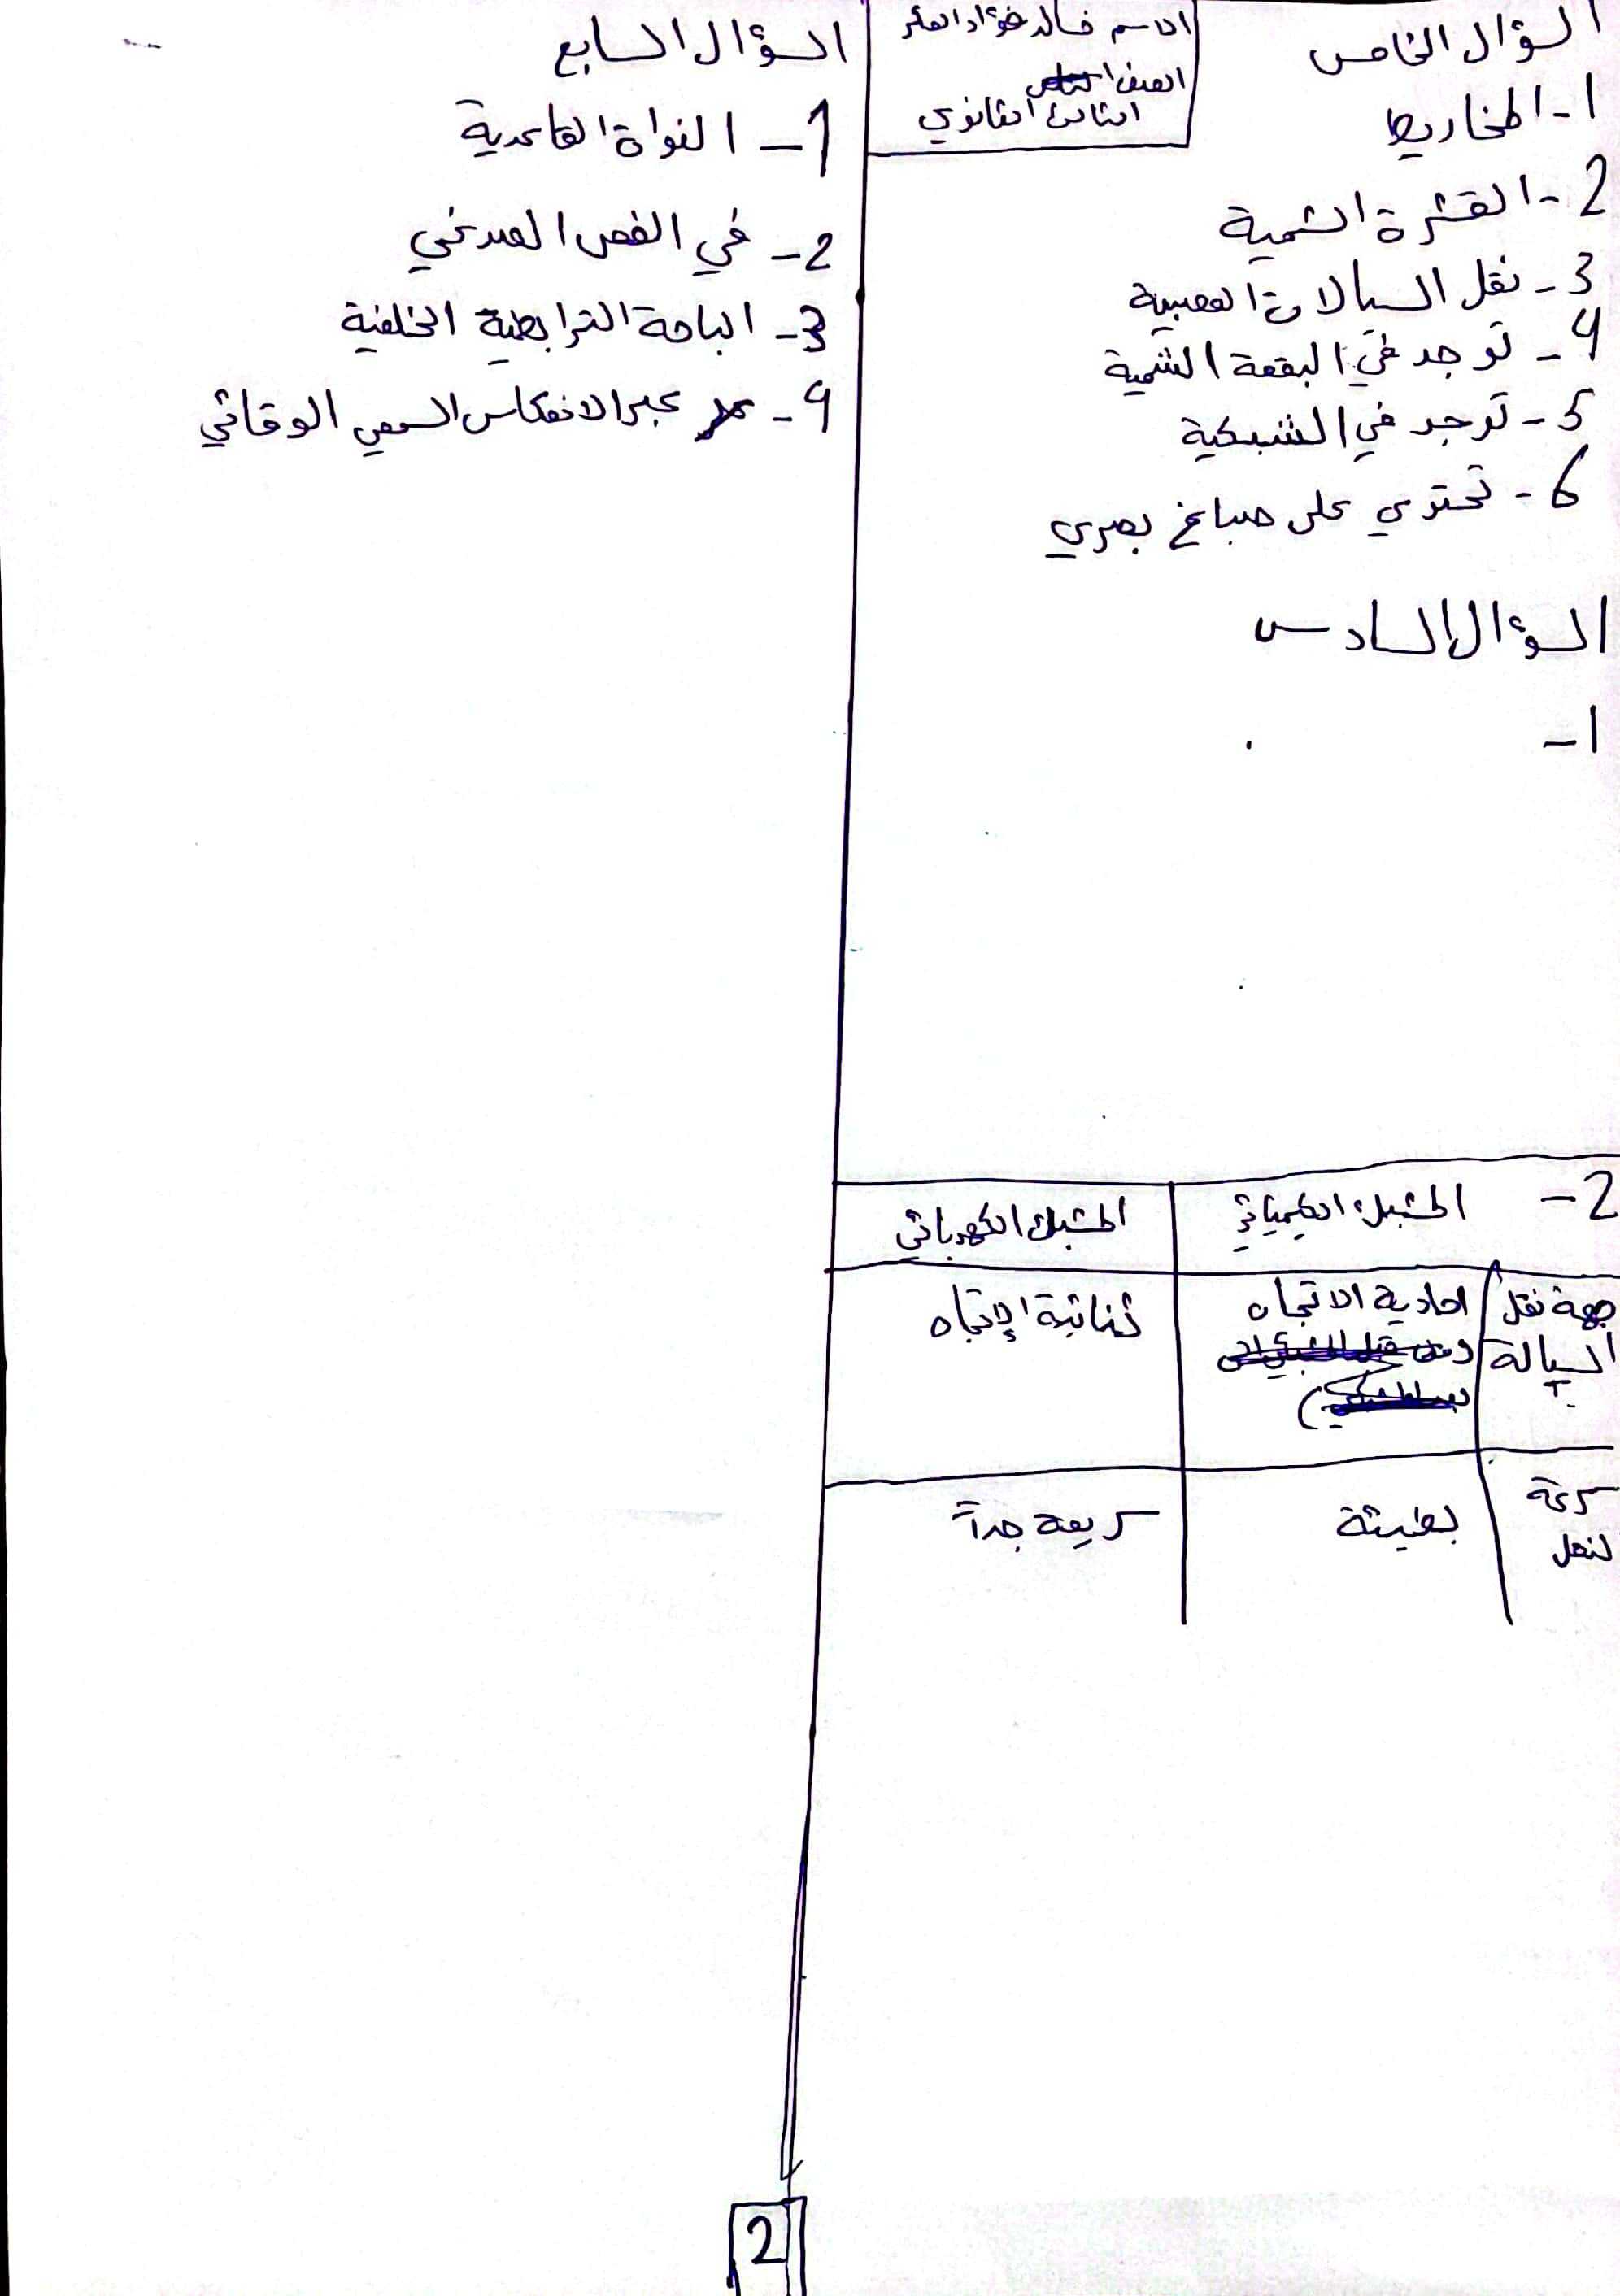 السؤال الخامس
1- المخاريط
2- القشرة الشمية
3- نقل السيالات العصبية
4- توجد في البقعة الشمية
5- توجد في الشبكية
6- تحتوي على صباغ بصري
السؤال السادس
1-
2-
المشبك الكيميائي المشبك الكهربائي
جهة نقل السيالة احادية الاتجاه ثنائية الإتجاه
سرعة لنقل بطيئة سريعة جداً
الاسم خالد فؤاد
الصف
الثالث الثانوي
السؤال السابع
1- النواة القاعدية
2- في الفص الصدغي
3- الباحة الترابطية الخلفية
4- عبر الانعكاس السمعي الوقائي
2